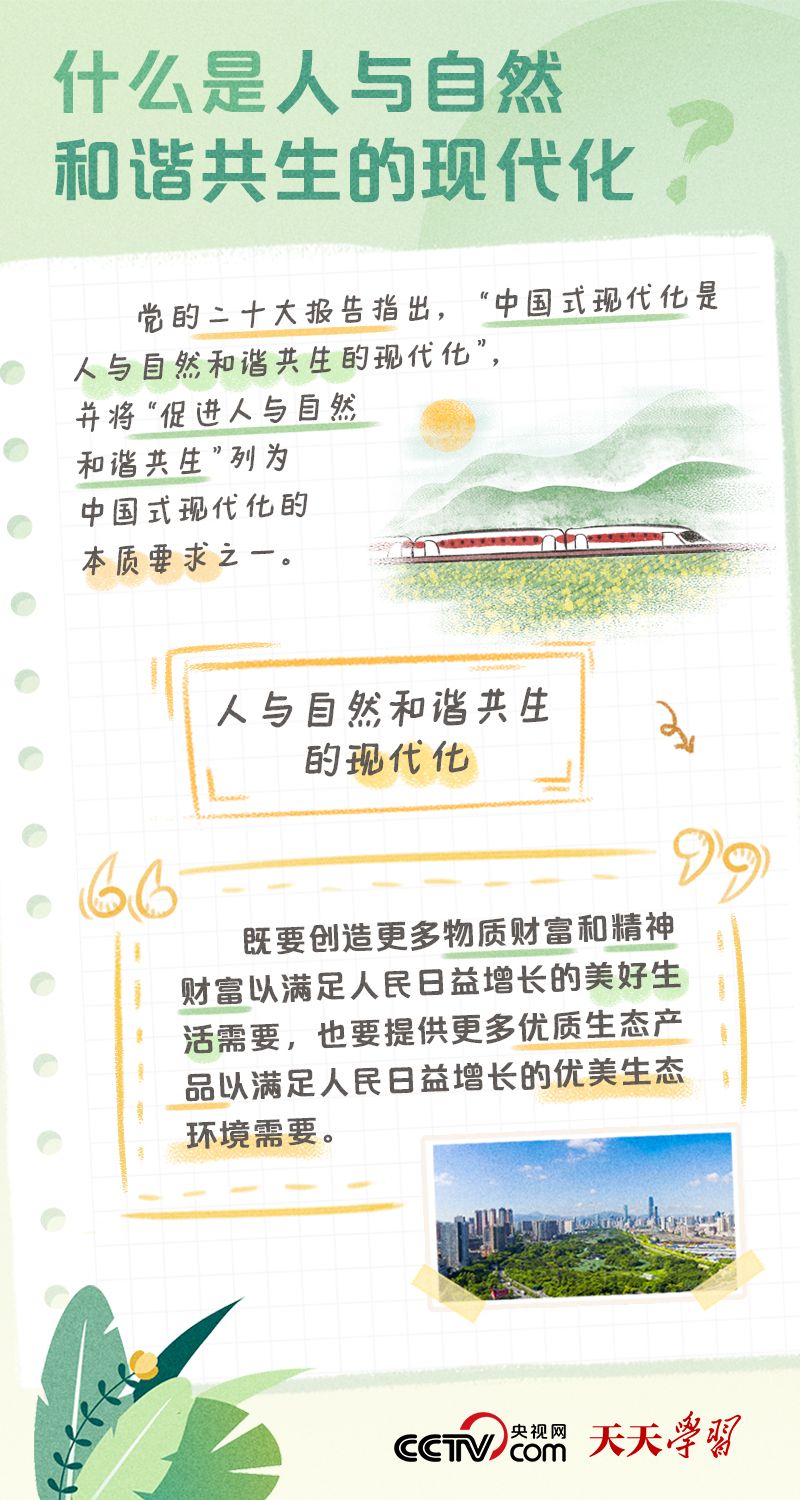 什么是人与自然
和谐共生的现代化？
党的二十大报告指出，“中国式现代化是
人与自然和谐共生的现代化”，
并将“促进人与自然
和谐共生”列为
中国式现代化的
本质要求之一。
人与自然和谐共生
的现代化
既要创造更多物质财富和精神
财富以满足人民日益增长的美好生
活需要，也要提供更多优质生态产
品以满足人民日益增长的优美生态
环境需要。
CCTV央视网com 天天學習